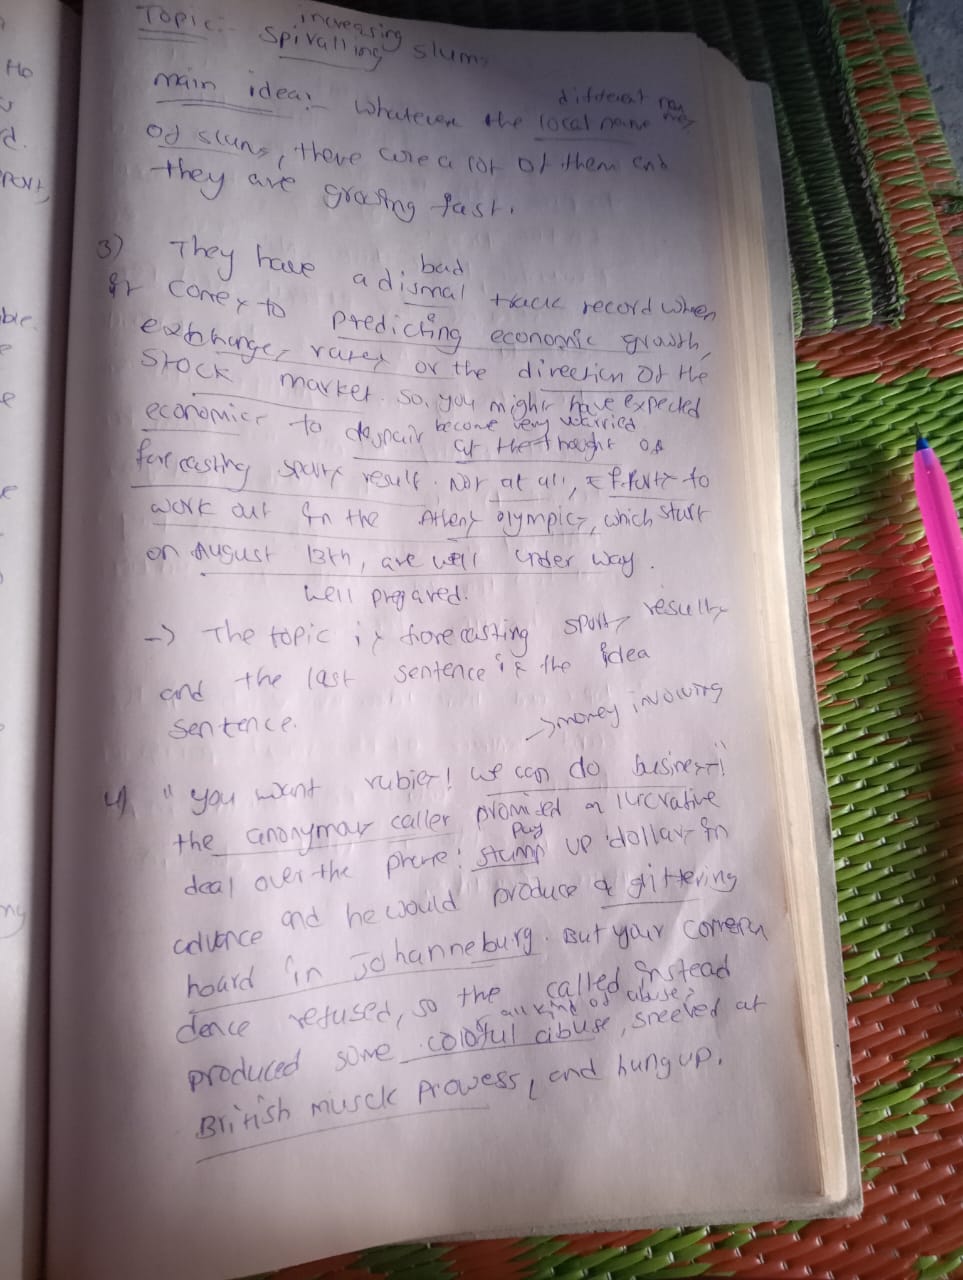 Topic:- increasing
Spiralling slums
main idea:- Whatever the local name different names
of slums, there are a lot of them and
they are growing fast.
3) They have a dismal bad track record when
it comes to predicting economic growth,
exchanges rates or the direction of the
stock market. So, you might have expected
economics to despair become very worried at the thought of
forecasting sports result. Not at all, efforts to
work out in the Athens olympics, which start
on August 13th, are well under way.
well prepared.
-> The topic is forecasting sports results
and the last sentence is the idea
sentence.
-> money invowing
4) "You want rubies! we can do business!"
the anonymous caller promised a lucrative
deal over the phone: stump pay up dollars in
advance and he would produce a glittering
hoard in Johanneburg. But your correspon
dence refused, so the called instead
all kind of abuse?
produced some colorful abuse, sneered at
British muscle prowess, and hung up.
Ho
d.
port,
ble.
e
e
e
ny